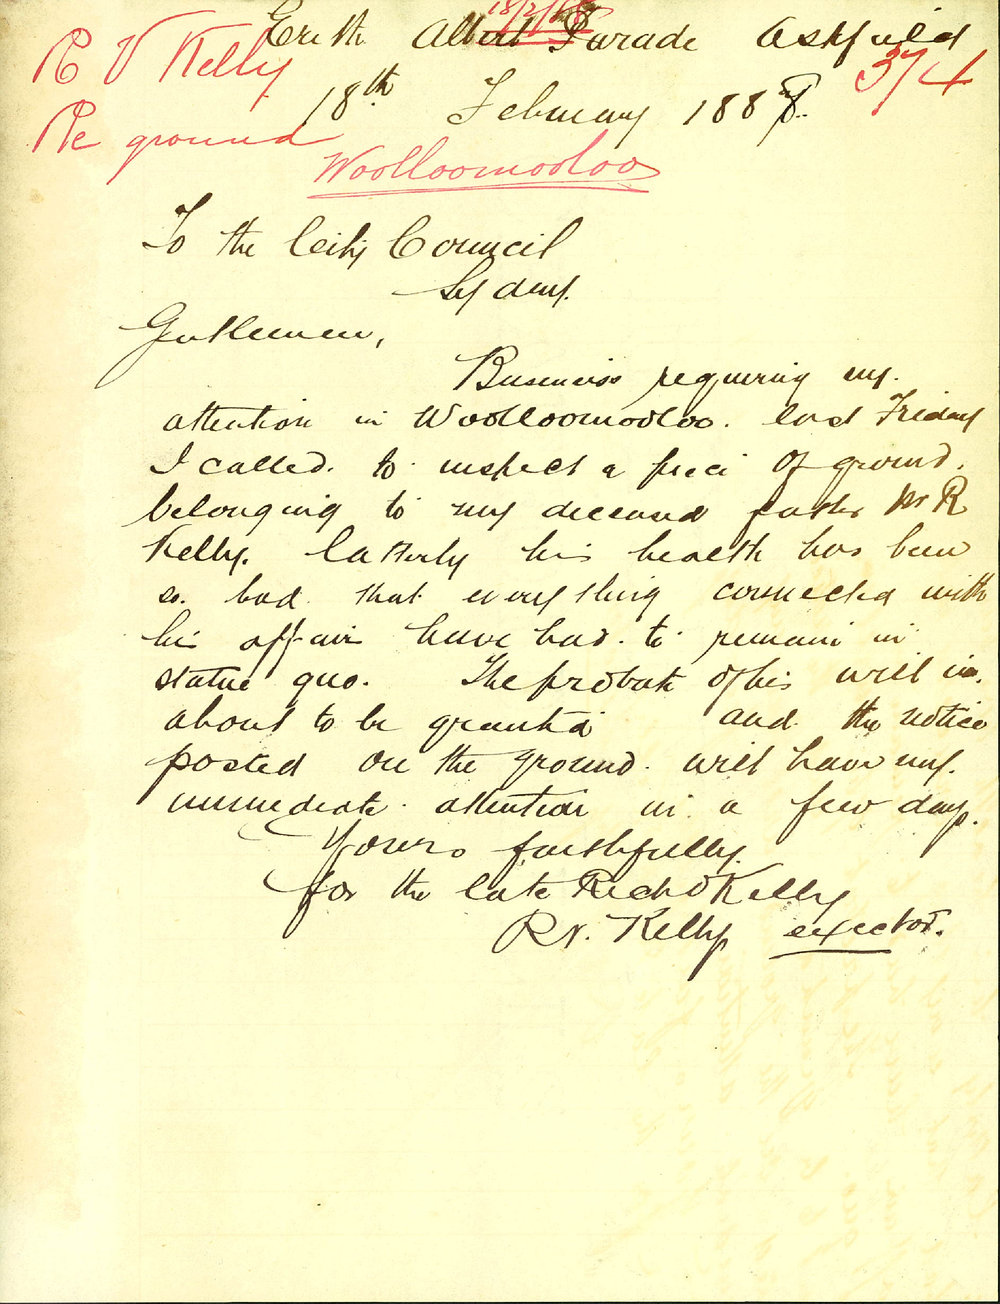 18/2/88
Erith Albert Parade Ashfield
R V Kelly
374
18th February 1888.
Re ground
Woolloomooloo
To the City Council
Sydney.
Gentlemen,
Business requiring my.
attention in Woolloomooloo. last Friday
I called. to inspect a piece of ground.
belonging to my deceased father Mr R
Kelly. latterly his health has been
so. bad that everything connected with
his affair have had. to remain in
statue quo. The probate of his will is.
about to be granted and the notice
posted on the ground. will have my.
immediate attention in a few days.
Yours faithfully.
for the late Richd Kelly
RV. Kelly exector.